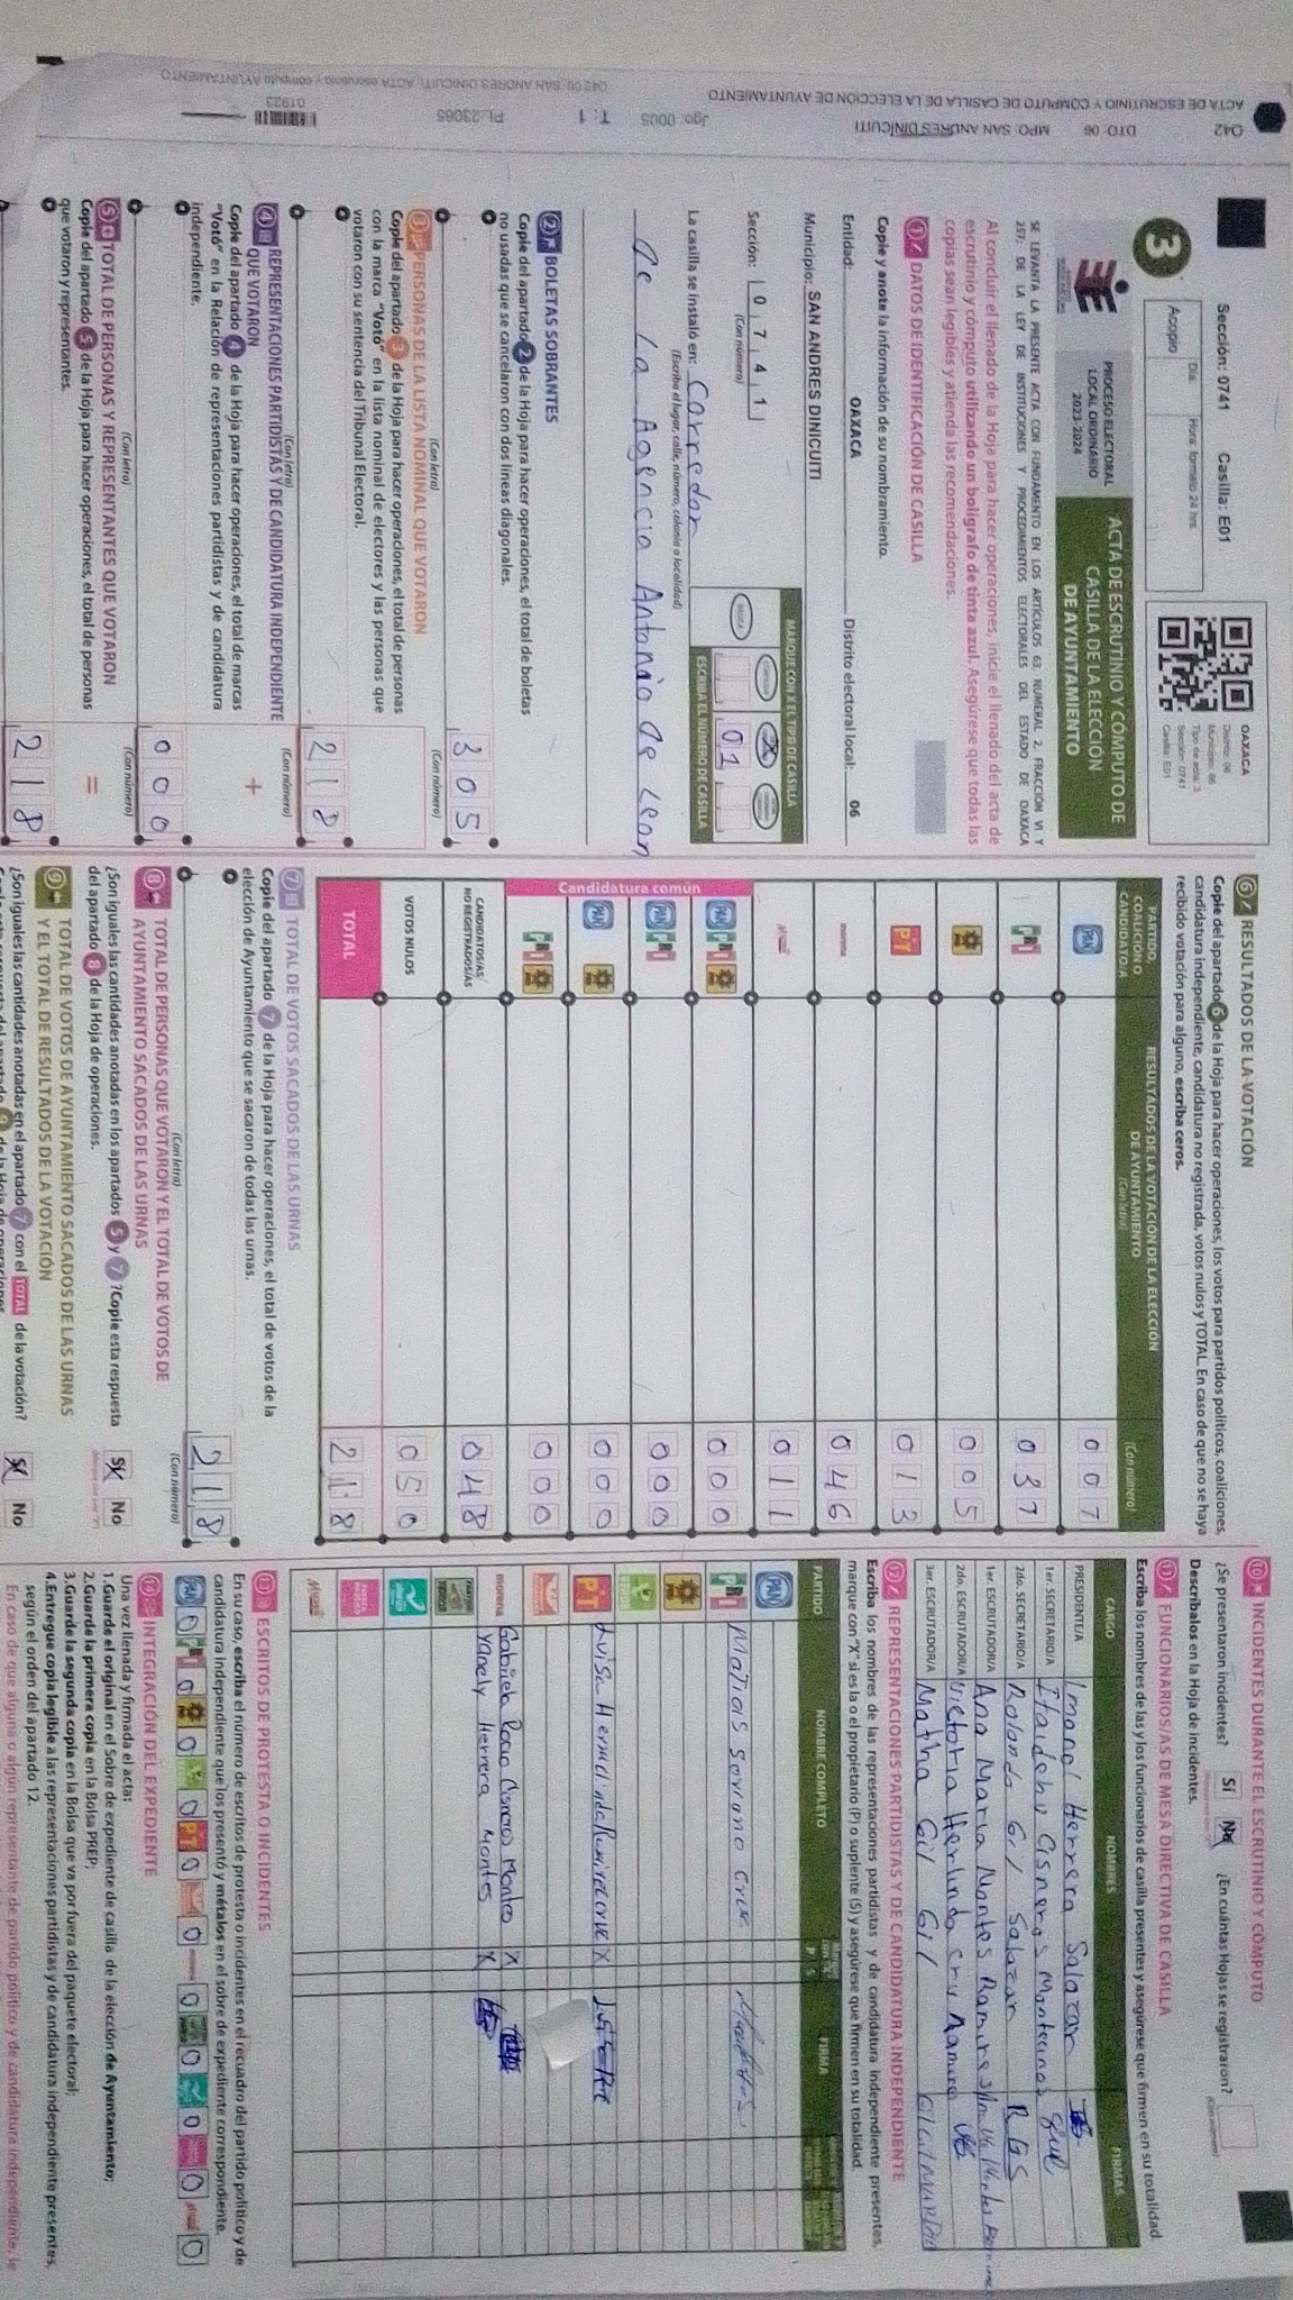 042 DTO: 06 MPO: SAN ANDRES DINICUITI Jgo: 0005 T: 1 PL:23065
01923
ACTA DE ESCRUTINIO Y CÓMPUTO DE CASILLA DE LA ELECCIÓN DE AYUNTAMIENTO
Sección: 0741 Casilla: E01
OAXACA
Distrito: 06
Municipio: 86
Tipo de acta: 3
Sección: 0741
Casilla: E01
3
Acopio
Día: Hora: formato 24 hrs.
PROCESO ELECTORAL
LOCAL ORDINARIO
2023-2024
ACTA DE ESCRUTINIO Y CÓMPUTO DE
CASILLA DE LA ELECCIÓN
DE AYUNTAMIENTO
SE LEVANTA LA PRESENTE ACTA CON FUNDAMENTO EN LOS ARTÍCULOS 63, NUMERAL 2, FRACCIÓN VI Y
257; DE LA LEY DE INSTITUCIONES Y PROCEDIMIENTOS ELECTORALES DEL ESTADO DE OAXACA
Al concluir el llenado de la Hoja para hacer operaciones, inicie el llenado del acta de
escrutinio y cómputo utilizando un bolígrafo de tinta azul. Asegúrese que todas las
copias sean legibles y atienda las recomendaciones.
1 DATOS DE IDENTIFICACIÓN DE CASILLA
Copie y anote la información de su nombramiento.
Entidad: OAXACA Distrito electoral local: 06
Municipio: SAN ANDRES DINICUITI
Sección: 0 7 4 1
(Con número)
MARQUE CON X EL TIPO DE CASILLA
X
01
ESCRIBA EL NÚMERO DE CASILLA
La casilla se instaló en: Corredor
(Escriba el lugar, calle, número, colonia o localidad)
de la Agencia Antonio de Leon
2 BOLETAS SOBRANTES
Copie del apartado 2 de la Hoja para hacer operaciones, el total de boletas
no usadas que se cancelaron con dos líneas diagonales.
305
(Con letra) (Con número)
3 PERSONAS DE LA LISTA NOMINAL QUE VOTARON
Copie del apartado 3 de la Hoja para hacer operaciones, el total de personas
con la marca "Votó" en la lista nominal de electores y las personas que
votaron con su sentencia del Tribunal Electoral.
218
(Con letra) (Con número)
4 REPRESENTACIONES PARTIDISTAS Y DE CANDIDATURA INDEPENDIENTE
QUE VOTARON +
Copie del apartado 4 de la Hoja para hacer operaciones, el total de marcas
"Votó" en la Relación de representaciones partidistas y de candidatura
independiente.
000
(Con letra) (Con número)
5 TOTAL DE PERSONAS Y REPRESENTANTES QUE VOTARON
Copie del apartado 5 de la Hoja para hacer operaciones, el total de personas =
que votaron y representantes.
218
6 RESULTADOS DE LA VOTACIÓN
Copie del apartado 6 de la Hoja para hacer operaciones, los votos para partidos políticos, coaliciones,
candidatura independiente, candidatura no registrada, votos nulos y TOTAL. En caso de que no se haya
recibido votación para alguno, escriba ceros.
PARTIDO, COALICIÓN O CANDIDATO/A
RESULTADOS DE LA VOTACIÓN DE LA ELECCIÓN
DE AYUNTAMIENTO
(Con letra) (Con número)
PAN 007
PRI 037
005
PT 013
morena 046
011
Candidatura común
PAN PRI 000
PAN PRI 000
PAN 000
PRI 000
CANDIDATOS/AS NO REGISTRADOS/AS 048
VOTOS NULOS 050
TOTAL 218
7 TOTAL DE VOTOS SACADOS DE LAS URNAS
Copie del apartado 7 de la Hoja para hacer operaciones, el total de votos de la
elección de Ayuntamiento que se sacaron de todas las urnas.
218
(Con letra) (Con número)
8 TOTAL DE PERSONAS QUE VOTARON Y EL TOTAL DE VOTOS DE
AYUNTAMIENTO SACADOS DE LAS URNAS
¿Son iguales las cantidades anotadas en los apartados 5 y 7? Copie esta respuesta
del apartado 8 de la Hoja de operaciones.
Sí No
9 TOTAL DE VOTOS DE AYUNTAMIENTO SACADOS DE LAS URNAS
Y EL TOTAL DE RESULTADOS DE LA VOTACIÓN
¿Son iguales las cantidades anotadas en el apartado 7 con el TOTAL de la votación?
Sí No
10 INCIDENTES DURANTE EL ESCRUTINIO Y CÓMPUTO
¿Se presentaron incidentes? Sí No ¿En cuántas Hojas se registraron?
Descríbalos en la Hoja de incidentes.
11 FUNCIONARIOS/AS DE MESA DIRECTIVA DE CASILLA
Escriba los nombres de las y los funcionarios de casilla presentes y asegúrese que firmen en su totalidad.
CARGO NOMBRES FIRMAS
PRESIDENTE/A Imanol Herrera Salazar
1er. SECRETARIO/A Itaidehu Cisneros Montesinos
2do. SECRETARIO/A Rolando Gil Salazar RGS
1er. ESCRUTADOR/A Ana Maria Montes Ramires
2do. ESCRUTADOR/A Victoria Herlinda Cruz Ramirez
3er. ESCRUTADOR/A Matiha Gil Gil
12 REPRESENTACIONES PARTIDISTAS Y DE CANDIDATURA INDEPENDIENTE
Escriba los nombres de las representaciones partidistas y de candidatura independiente presentes,
marque con "X" si es la o el propietario (P) o suplente (S) y asegúrese que firmen en su totalidad.
PARTIDO NOMBRE COMPLETO FIRMA
PAN
PRI Matias Soriano Cruz
PT Luisa Hermelinda Ramirez Cruz X
morena Gabriela Rocio Cisneros Montes X
Yanely Herrera Montes X
13 ESCRITOS DE PROTESTA O INCIDENTES
En su caso, escriba el número de escritos de protesta o incidentes en el recuadro del partido político y de
candidatura independiente que los presentó y métalos en el sobre de expediente correspondiente.
PAN 0 PRI 0 0 0 PT 0 0 0 0 0 0 0
14 INTEGRACIÓN DEL EXPEDIENTE
Una vez llenada y firmada el acta:
1.Guarde el original en el Sobre de expediente de casilla de la elección de Ayuntamiento;
2.Guarde la primera copia en la Bolsa PREP;
3.Guarde la segunda copia en la Bolsa que va por fuera del paquete electoral;
4.Entregue copia legible a las representaciones partidistas y de candidatura independiente presentes,
según el orden del apartado 12.
En caso de que alguna o algún representante de partido político y de candidatura independiente, le